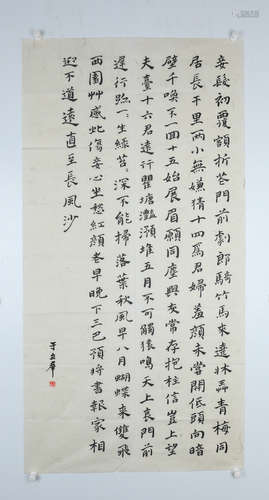 妾髮初覆額折花門前劇郎騎竹馬來遶牀弄青梅同
居長干里兩小無嫌猜十四爲君婦羞顔未嘗開低頭向暗
壁千喚不一回十五始展眉願同塵與灰常存抱柱信豈上望
夫臺十六君遠行瞿塘灩澦堆五月不可觸猿鳴天上哀門前
遲行跡一一生綠苔〻深不能掃落葉秋風早八月蝴蝶來雙飛
西園艸感此傷妾心坐愁紅顔老早晚下三巴預將書報家相
迎不道遠直至長風沙
于立群